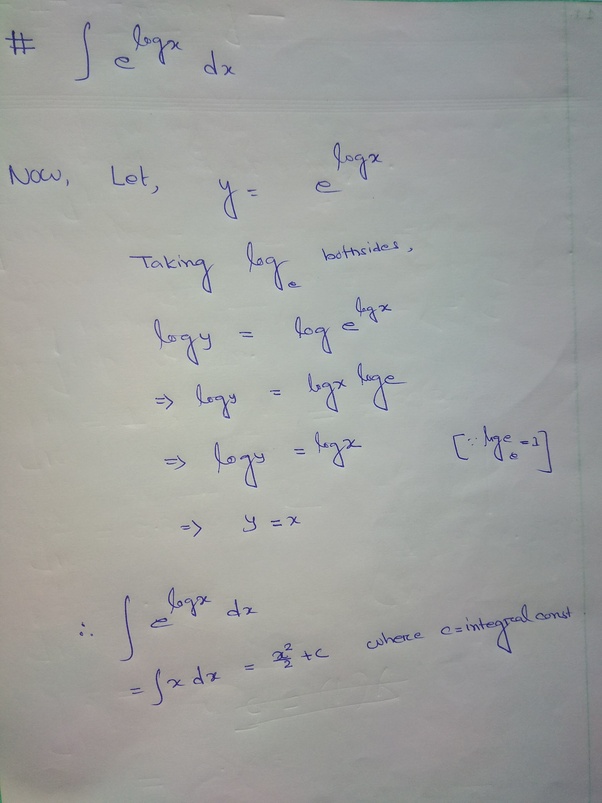 # ∫ e^logx dx
Now, Let, y = e^logx
Taking log_e bothsides,
logy = log e^logx
⇒ logy = logx loge
⇒ logy = logx [∵ log_e e = 1]
⇒ y = x
∴ ∫ e^logx dx
= ∫ x dx = x²/2 + c where c = integral const